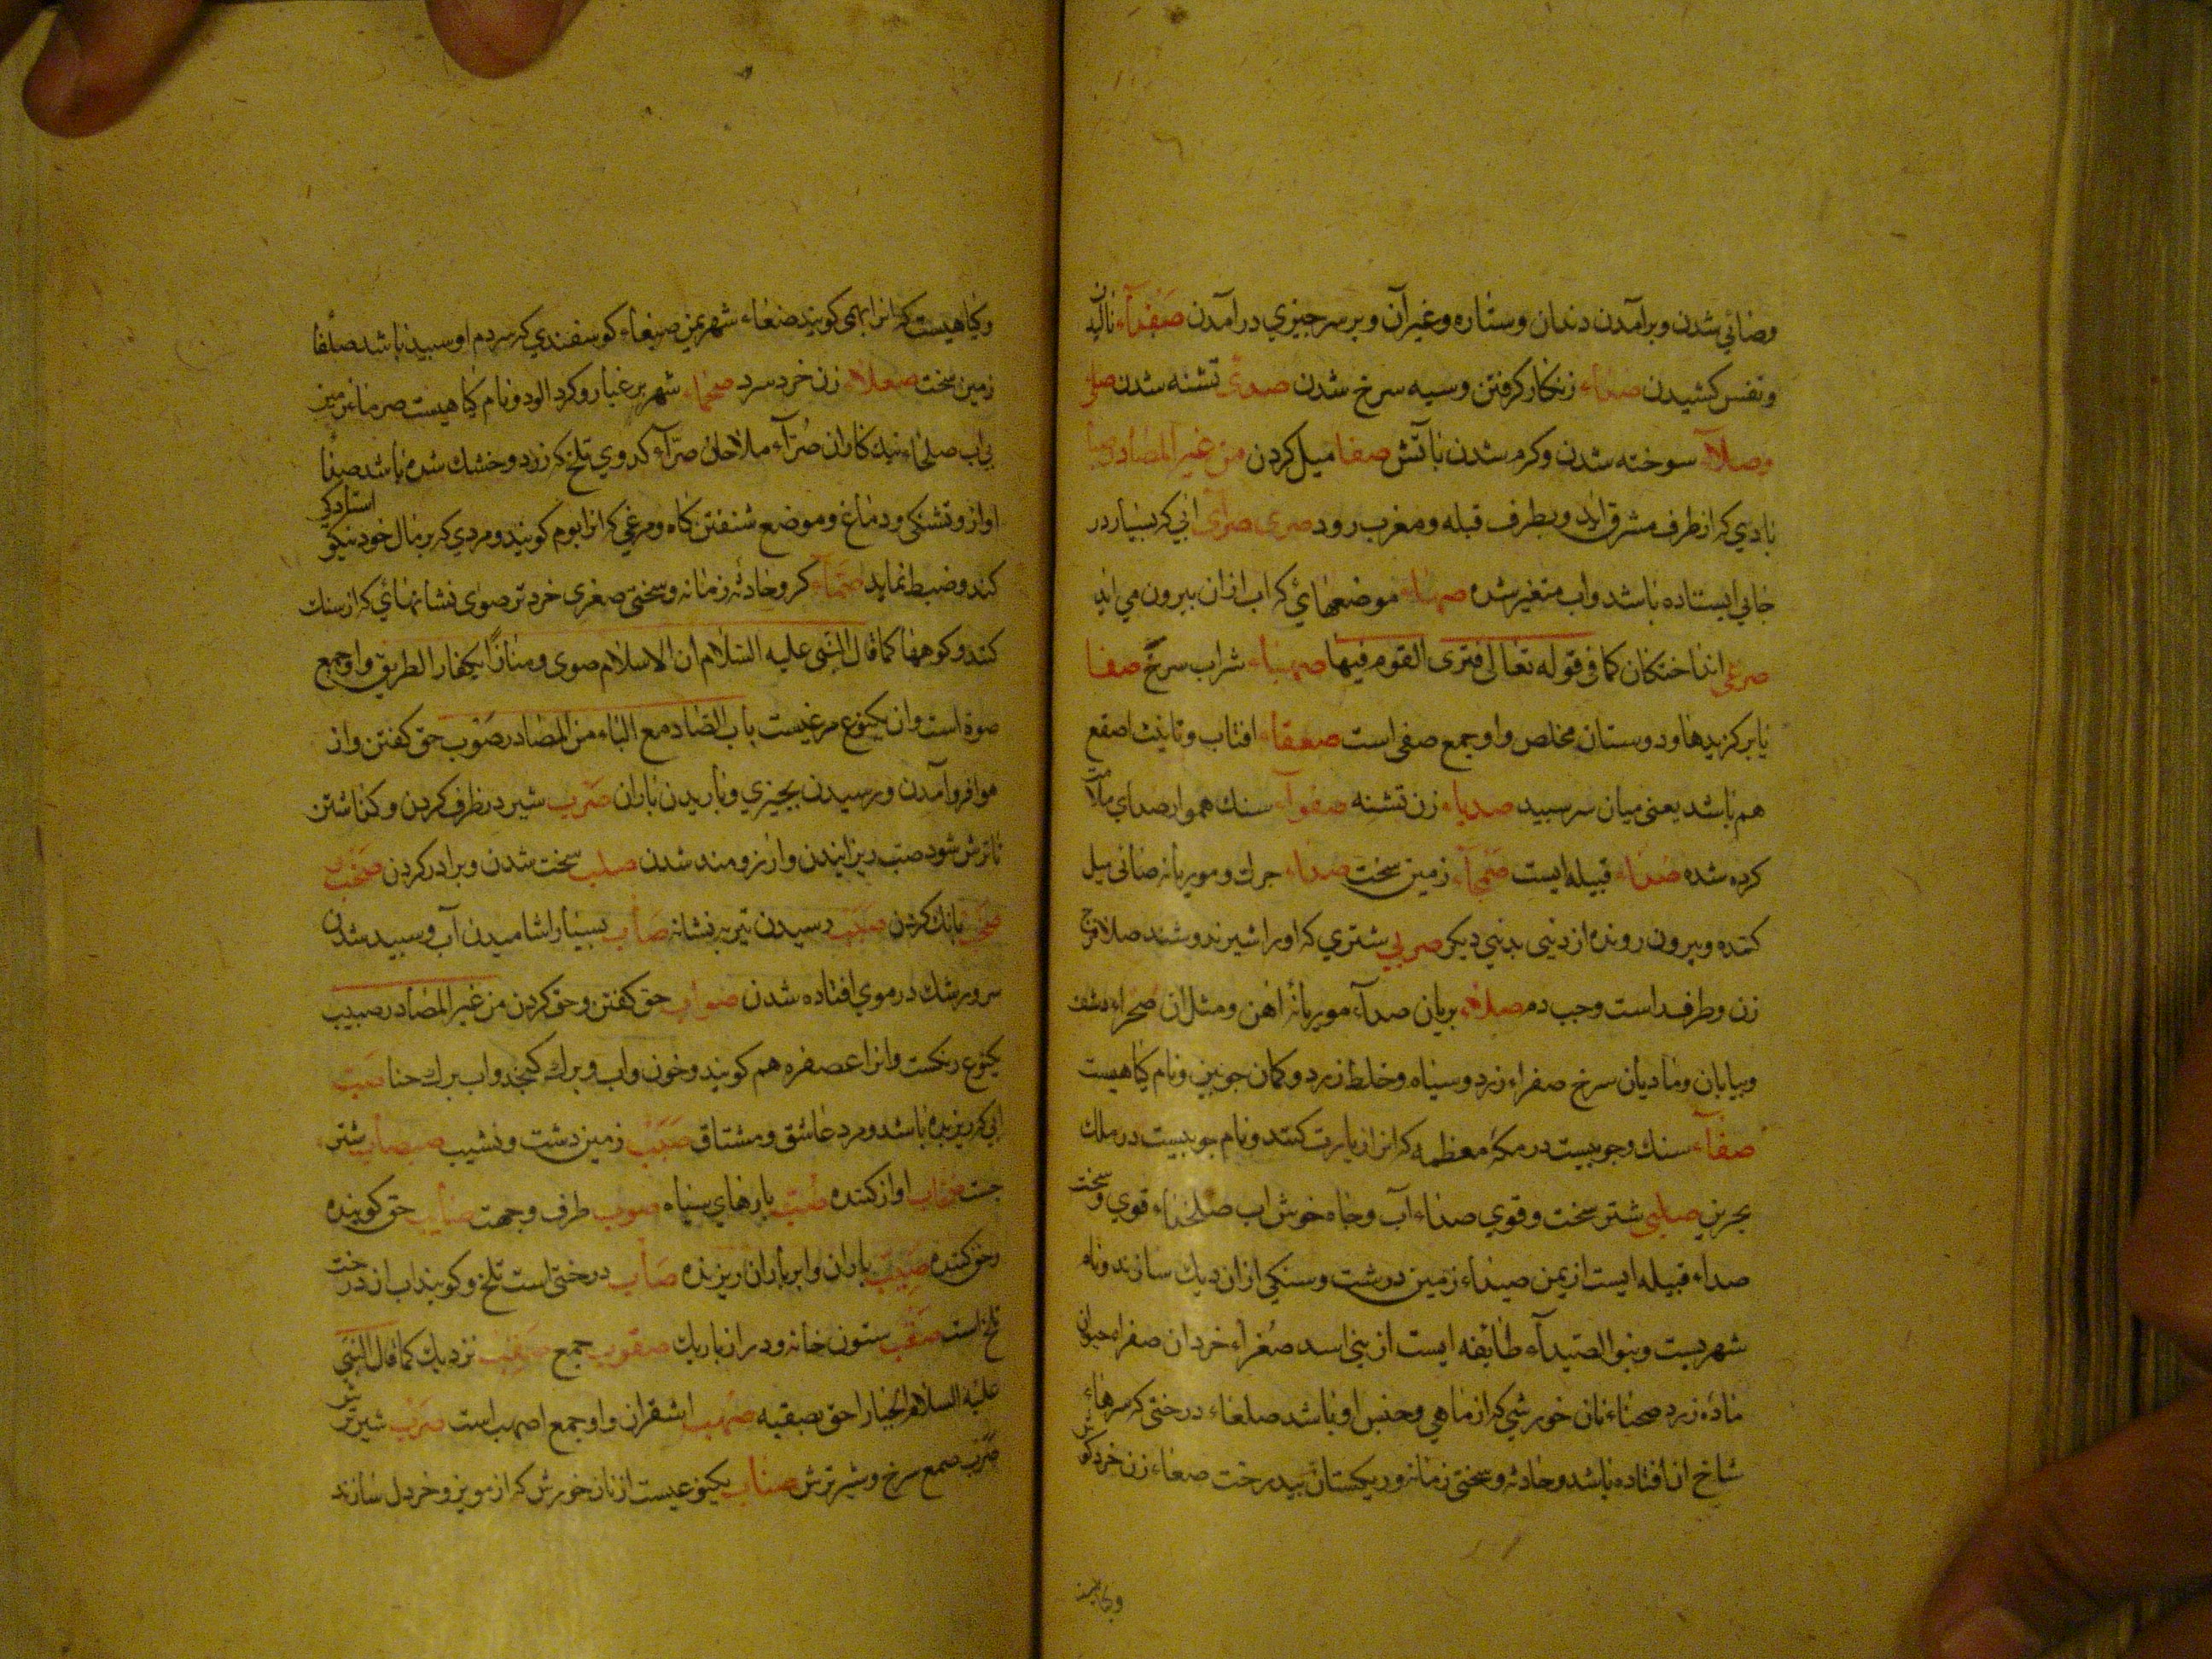 وصائي شدن وبرآمدن دندان وستاره وغير آن وبر سر چيزي در آمدن صعداء ناليدن
ونفس كشيدن صداء زنكار كرفتن وسيه سرخ شدن صدى تشنه شدن صلى
وصلاء سوخته شدن وكرم شدن باآتش صغا ميل كردن من غير المصادر صبا
بادي كه از طرف مشرق ايد وبطرف قبله ومغرب رود صرى صراى ابي كه بسيار در
جايي ايستاده باشد واب متغير شده صهاء موضعهائي كه اب ازان بيرون مي ايد
صرعى انداختكان كما في قوله تعالى فترى القوم فيها صهباء شراب سرخ صفا
يا بركزيدها ودوستان مخلص واو جمع صفي است صقعاء افتاب وتانيث اصقع
هم باشد يعنى ميان سر سپيد صدياء زن تشنه صفواء سنك هموار صداي ملامت
كرده شده صداء قبيله ايست صحاء زمين سخت صداء چرك وموريانه صائى ميل
كننده وبيرون رونده از ديني بديني ديكر صربى شتري كه اورا شير ندوشند صلا فرج
زن وطرف است وچپ دم صلاء بريان صداء موريانۀ اهن ومثل ان صحراء دشت
وبيابان وماديان سرخ صفراء زرد وسياه وخلط زرد وكمان چوبين ونام كياهيست
صفاء سنك وجوييست در مكۀ معظمه كه انرا زيارت كنند ونام جوييست در ملك
بحرين صلبى شتر سخت وقوي صداء آب وچاه خوش اب صلخداء قوي وسخت
صداء قبيله ايست از يمن صيداء زمين درشت وسنكي ازان ديك سازند ونام
شهريست وبنو الصيداء طائفه ايست از بني اسد صغراء خردان صفراء حيوان
مادۀ زرد صحناء نان خورشي كه از ماهي وجنس او باشد صلعاء درختى كه سرهاء
شاخ ان افتاده باشد وحادثه وسختى زمانه وريكستان بي درخت صمعاء زن خرد كوش
وكياهيست
وكياهيست كه انرا بهمى كويند صنعاء شهر يمن صبغاء كوسفندي كه سر دم او سپيد باشد صلفا
زمين سخت صعلاء زن خرد سر صحماء شهر پر غبار وكرد الود ونام كياهيست صرماء زمين
بى اب صلحاء نيك كاران صراء ملاحان صراء كدوي تلخ كه زرد وخشك شده باشد صدا
اواز وتشنكى ودماغ وموضع شنفتن كاه ومرغي كه انرا بوم كويند ومردي كه بر مال خود نيكو استادكي
كند وضبط نمايد صماء كر وحادثۀ زمانه وسختى صغرى خردتر صوى نشانهائي كه از سنك
كنند وكوهها كما قال النبي عليه السلام ان الاسلام صوى ومنارا كمنار الطريق واو جمع
صوة است وان يكنوع مرغيست باب الصاد مع الباء من المصادر صوب حق كفتن واز
هوا فرو آمدن ورسيدن بچيزي وباريدن باران صرب شير در ظرف كردن وكذاشتن
تا ترش شود صب ريزانيدن وارزومند شدن صلب سخت شدن وبر دار كردن صخب
صخب بانك كردن صيب رسيدن تير به نشانه صأب بسيار اشاميدن آب وسپيد شدن
سر ورشك در موي افتاده شدن صواب حق كفتن وحق كردن من غير المصادر صبيب
يكنوع رنكست وانرا عصفره هم كويند وخون واب وبرك كنجد واب برك حنا صب
ابي كه ريزيده باشد ومرد عاشق ومشتاق صبب زمين دشت ونشيب صبصاب شتر
اواز كننده پارهاي سياه صوب طرف وجهت صاب حق كوينده
وحق كننده صيب باران وابر باران ريزنده صاب درختى است تلخ وكويند اب ان درخت
تلخ است صقب ستون خانه ودراز باريك صقوب جمع صقب نزديك كما قال النبي
عليه السلام الجار احق بصقبه صهب اشقران واو جمع اصهب است صرب شير ترش
صرب صمغ سرخ وشير ترش صناب يكنوعيست از نان خورش كه از مويز وخردل سازند